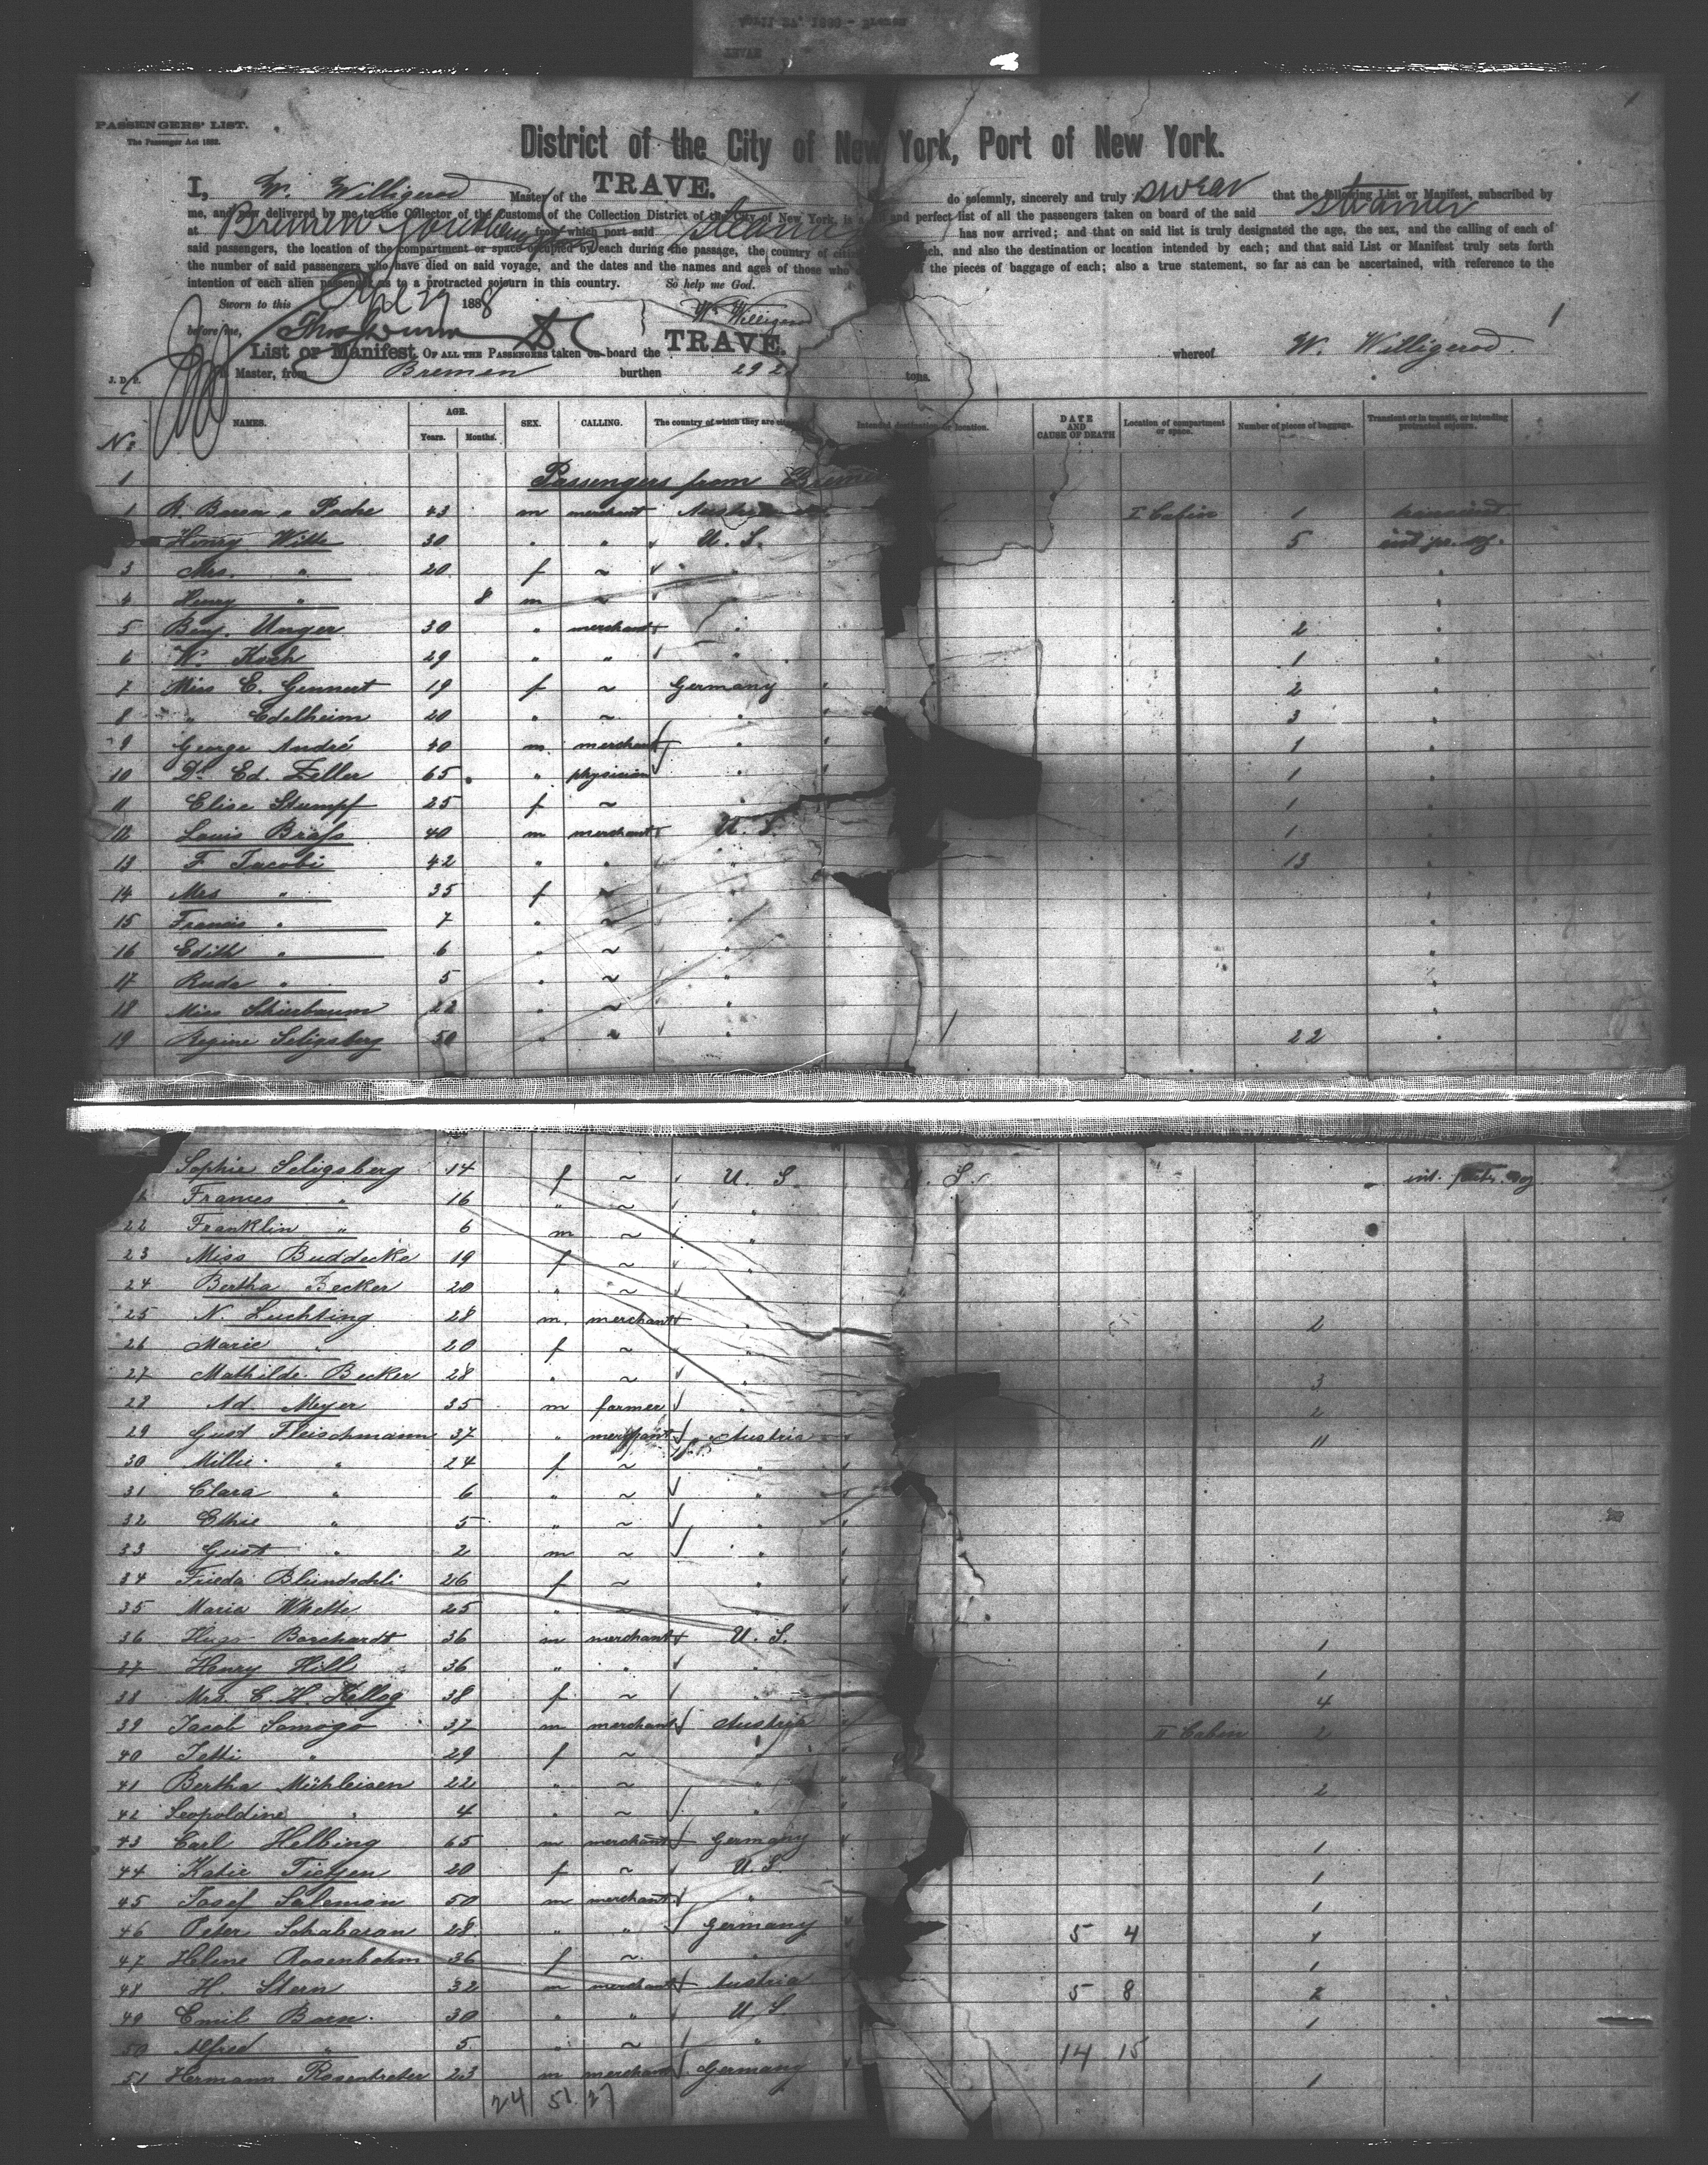 PASSENGERS' LIST.
The Passenger Act 1882.
District of the City of New York, Port of New York.
I, W. Willigerod Master of the TRAVE. do solemnly, sincerely and truly swear that the following List or Manifest, subscribed by
me, and now delivered by me to the Collector of the Customs of the Collection District of the City of New York, is a and perfect list of all the passengers taken on board of the said Steamer
at Bremen from which port said Steamer has now arrived; and that on said list is truly designated the age, the sex, and the calling of each of
said passengers, the location of the compartment or space occupied by each during the passage, the country of and also the destination or location intended by each; and that said List or Manifest truly sets forth
the number of said passengers who have died on said voyage, and the dates and the names and ages of those who the pieces of baggage of each; also a true statement, so far as can be ascertained, with reference to the
intention of each alien passenger as to a protracted sojourn in this country. So help me God.
Sworn to this 1888 W. Willigerod
before me,
List or Manifest, OF ALL THE PASSENGERS taken on board the TRAVE. whereof W. Willigerod 1
J. D. P. Master, from Bremen burthen tons.
No. NAMES. AGE. Years. Months. SEX. CALLING. The country of which they are Intended destination or location. DATE AND CAUSE OF DEATH Location of compartment or space. Number of pieces of baggage. Transient or in transit, or intending protracted sojourn.
1 Passengers from
1 R. 43 m merchant I Cabin 1 transient
Henry Witte 30 " " U. S. 5
3 Mrs. " 20 f ~ "
4 Henry " 8 m ~ "
5 Benj. Unger 30 " merchant " 2 "
6 W. Koch 29 " " " 1 "
7 Miss E. Gennert 19 f ~ Germany " 2 "
8 " Edelheim 20 " ~ " " 3 "
9 George André 40 m merchant " " 1 "
10 Dr. Ed. Ziller 65 " physician " " 1 "
11 Elise Stumpf 25 f ~ 1 "
12 Louis Brass 40 m merchant U. S. 1 "
13 F Jacobi 42 " " " 13 "
14 Mrs " 35 f ~ " "
15 Francis " 7 " ~ " "
16 Edith " 6 " ~ " "
17 " 5 " ~ " "
18 Miss Schierbaum 22 " ~ " "
19 Regine Seligsberg 50 " " " 22 "
Sophie Seligsberg 14 f ~ U. S. S.
Frances " 16 " ~ "
22 Franklin " 6 m ~ "
23 Miss Buddecke 19 f ~ "
24 Bertha Becker 20 " ~ "
25 N. Luchting 28 m. merchant " 2
26 Marie " 20 f ~ "
27 Mathilde Becker 28 " ~ " 3
28 Ad. Meyer 35 m farmer " 2
29 Gust Fleischmann 37 " merchant Austria 11
30 Millie " 24 f ~ "
31 Clara " 6 " ~ "
32 " 5 " ~ "
33 Gust " 2 m ~ "
34 Frieda Blundschli 26 f ~ "
35 Maria 25 " ~
36 Hugo Borchardt 36 m merchant U. S. 1
37 Henry Hill 36 " " " 1
38 Mrs. C. H. Kellog 38 f ~ " 4
39 Jacob Somogo 37 m merchant Austria II Cabin 2
40 Jetti " 29 f ~ "
41 Bertha Mühleisen 22 " ~ " 2
42 Leopoldine " 4 " ~ "
43 Carl Helbing 65 m merchant Germany 1
44 Katie Tietjen 20 f ~ U. S. 1
45 Josef Saleman 50 m merchant " 1
46 Peter 28 " " Germany 5 4
47 Helene Rosenbohm 36 f ~ 1
48 H. Stern 32 m merchant Austria 5 8 2
49 Emil 30 " " U S 1
50 Alfred " 5 " ~ " 14 15
51 Hermann Rosentreter 23 m merchant Germany 1
24 51. 27